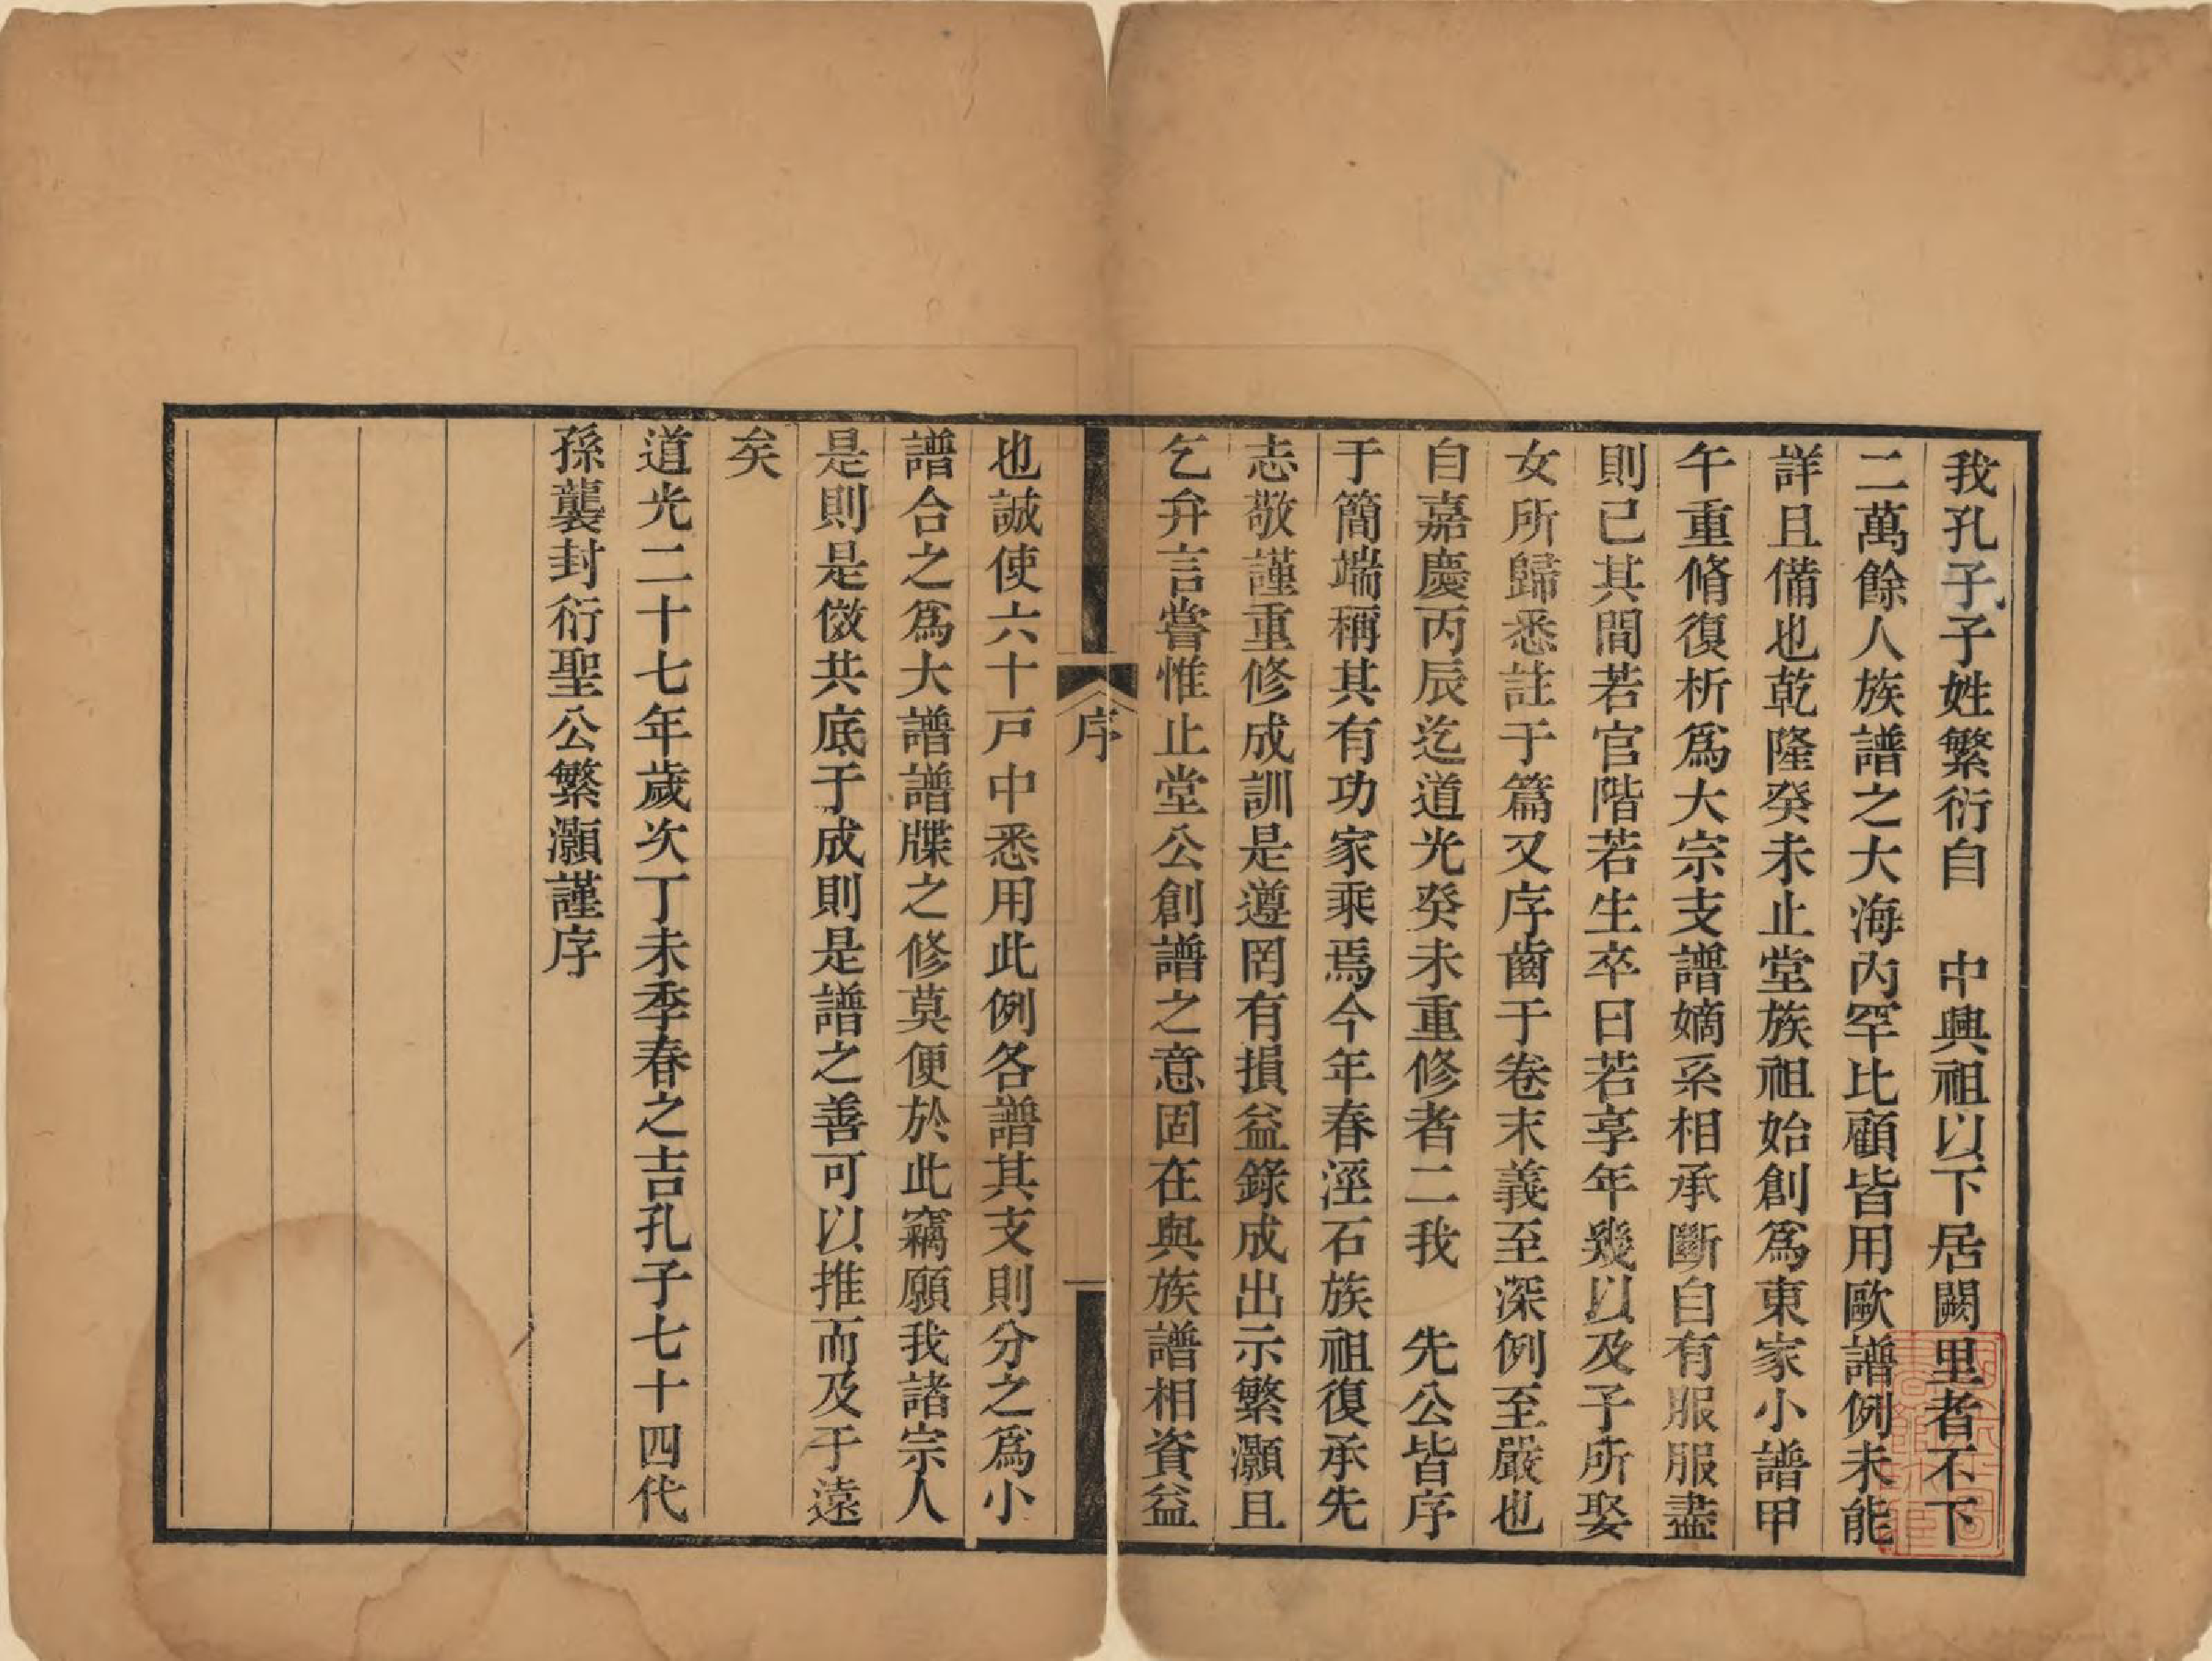 我孔子孔子姓繁衍自　中興祖以下居闕里者不下
二萬餘人族譜之大海內罕比顧皆用歐譜例未能
詳且備也乾隆癸未止堂族祖始創爲東家小譜甲
午重脩復析爲大宗支譜嫡系相承斷自有服服盡
則已其間若官階若生卒曰若享年幾以及子所娶
女所歸悉註于篇又序齒于卷末義至深例至嚴也
自嘉慶丙辰迄道光癸未重修者二我　先公皆序
于簡端稱其有功家乘焉今年春涇石族祖復承先
志敬謹重修成訓是遵罔有損益錄成出示繁灝且
乞弁言嘗惟止堂公創譜之意固在與族譜相資益
序
一
也誠使六十戸中悉用此例各譜其支則分之爲小
譜合之爲大譜譜牒之修莫便於此竊願我諸宗人
是則是傚共底于成則是譜之善可以推而及于遠
矣
道光二十七年歲次丁未季春之吉孔子七十四代
孫襲封衍聖公繁灝謹序